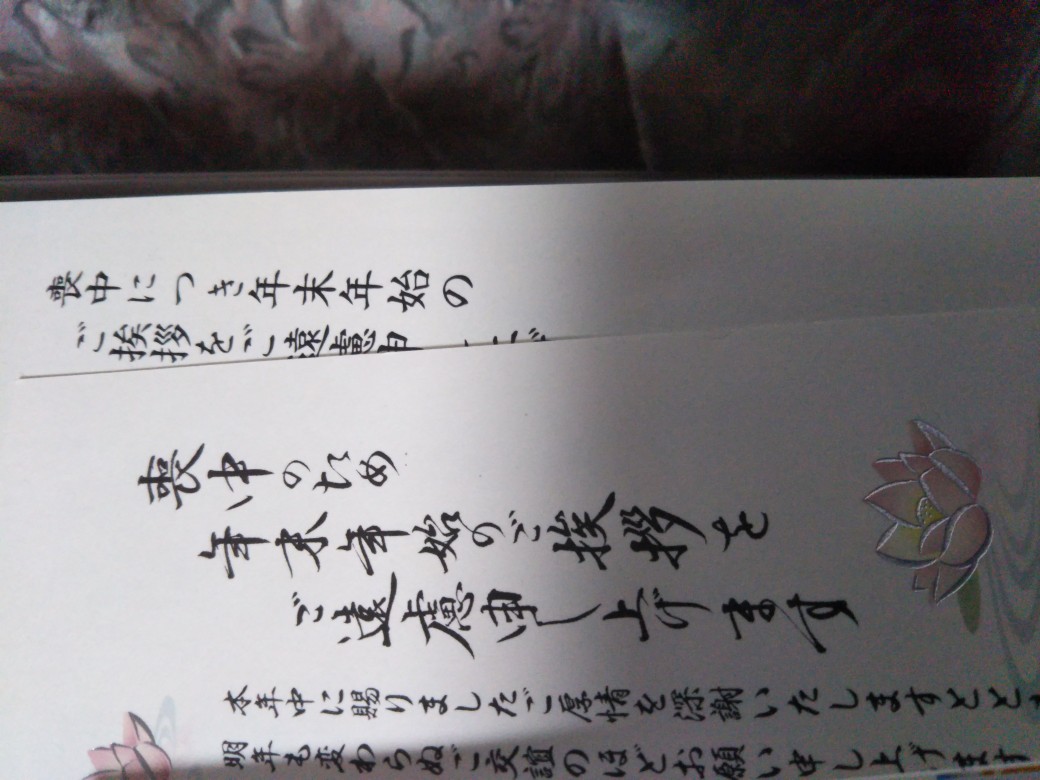 喪中につき年末年始の
ご挨拶をご遠慮申
喪中のため
年末年始のご挨拶を
ご遠慮申し上げます
本年中に賜りましたご厚情を深謝いたしますとと
明年も変わらぬご交誼のほどお願い申し上げます